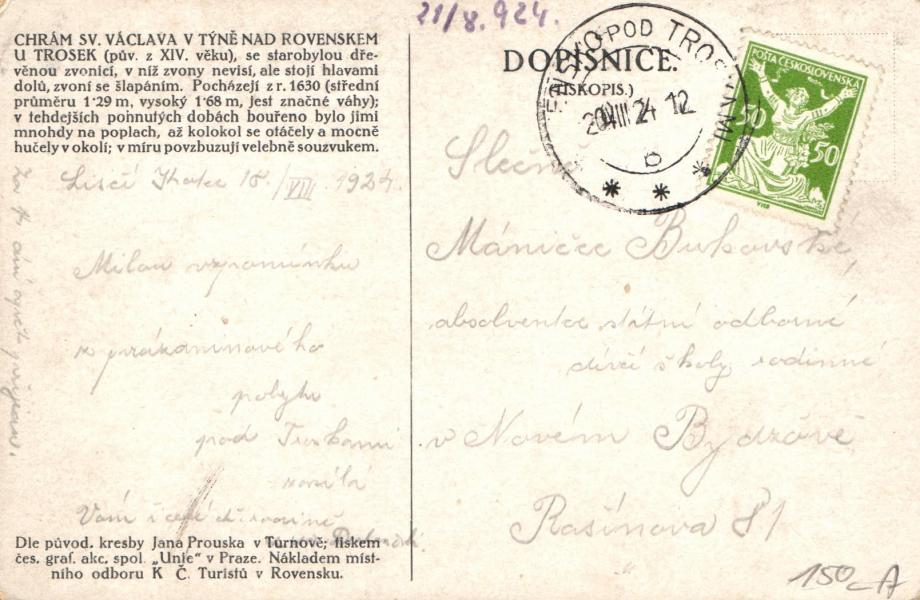 21/8.924.
CHRÁM SV. VÁCLAVA V TÝNĚ NAD ROVENSKEM
U TROSEK (pův. z XIV. věku), se starobylou dře-
věnou zvonicí, v níž zvony nevisí, ale stojí hlavami
dolů, zvoní se šlapáním. Pocházejí z r. 1630 (střední
průměru 1·29 m, vysoký 1·68 m, jest značné váhy);
v tehdejších pohnutých dobách bouřeno bylo jimi
mnohdy na poplach, až kolokol se otáčely a mocně
hučely v okolí; v míru povzbuzují velebně souzvukem.
Lisčí Kotec 18./VIII. 1924.
Milou vzpomínku
z prázdninového
pobytu
pod Troskami
zasílá
Vám i celé ct. rodině
Dle původ. kresby Jana Prouska v Turnově; tiskem
čes. graf. akc. spol. „Unie“ v Praze. Nákladem míst-
ního odboru K Č. Turistů v Rovensku.
DOPISNICE.
(TISKOPIS.)
POD TROSKAMI
20.VIII 24 12
b
POŠTA ČESKOSLOVENSKÁ
50 50
Slečně
Máničce Bukovské,
absolventce státní odborné
dívčí školy rodinné
v Novém Bydžově
Rašínova 81
150,-A